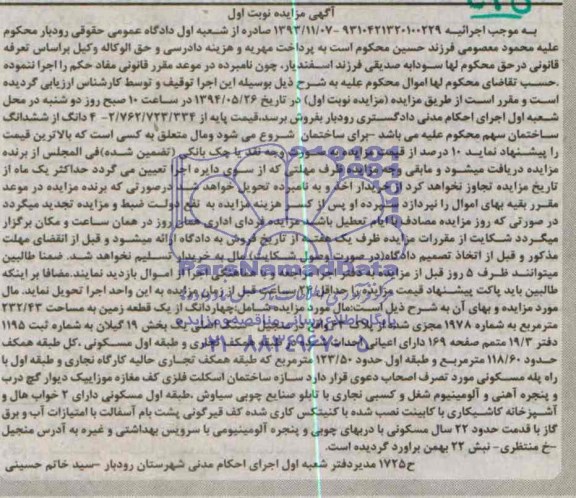 آگهی مزایده نوبت اول
به موجب اجرائیه ۹۳۱۰۴۲۱۳۲۰۱۰۰۲۲۹ -۱۳۹۳/۱۱/۰۷ صادره از شعبه اول دادگاه عمومی حقوقی رودبار محکوم
علیه محمود معصومی فرزند حسین محکوم است به پرداخت مهریه و هزینه دادرسی و حق الوکاله وکیل براساس تعرفه
قانونی درحق محکوم لها سودابه صدیقی فرزند اسفندیار، چون نامبرده در موعد مقرر قانونی مفاد حکم را اجرا ننموده
.حسب تقاضای محکوم لها اموال محکوم علیه به شرح ذیل بوسیله این اجرا توقیف و توسط کارشناس ارزیابی گردیده
است و مقرر است از طریق مزایده (مزایده نوبت اول) در تاریخ ۱۳۹۴/۰۵/۲۶ در ساعت ۱۰ صبح روز دو شنبه در محل
شعبه اول اجرای احکام مدنی دادگستری رودبار بفروش برسد،قیمت پایه از ۲/۷۶۲/۷۲۳/۳۳۴- ۴ دانگ از ششدانگ
ساختمان سهم محکوم علیه می باشد -برای ساختمان شروع می شود ومال متعلق به کسی است که بالاترین قیمت
را پیشنهاد نماید ۱۰ درصد از قیمت مزایده به صورت وجه نقد یا چک بانکی (تضمین شده)فی المجلس از برنده
مزایده دریافت میشود و مابقی وجه مزایده ظرف مهلتی که از سوی دایره اجرا تعیین می گردد حداکثر یک ماه از
تاریخ مزایده تجاوز نخواهد کرد از خریدار اخذ و به نامبرده تحویل خواهد شد درصورتی که برنده مزایده در موعد
مقرر بقیه بهای اموال را نپردازد سپرده او پس از کسر هزینه مزایده به نفع دولت ضبط و مزایده تجدید میگردد
در صورتی که روز مزایده مصادف با ایام تعطیل باشد مزایده فردای اداری همان روز در همان ساعت و مکان برگزار
میگردد شکایت از مقررات مزایده ظرف یک هفته از تاریخ فروش به دادگاه ارائه میشود و قبل از انقضای مهلت
مذکور و قبل از اتخاذ تصمیم دادگاه(در صورت وصول شکایت)مال به خریدار تسلیم نخواهد شد. ضمنا طالبین
میتوانند ظرف ۵ روز قبل از مزایده از اموال بازدید نمایند.مضافا بر اینکه
طالبین باید پاکت پیشنهاد قیمت مزایده را حداقل ۲۴ ساعت قبل از زمان مزایده به این واحد اجرا تحویل نماید. مال
مورد مزایده و بهای آن به شرح ذیل است:مال مورد مزایده شامل:چهاردانگ از یک قطعه زمین به مساحت ۲۳۲/۴۳
مترمربع به شماره ۱۹۷۸ مجزی شده از پلاک واقع در منجیل بخش ۱۹ گیلان به شماره ثبت ۱۱۹۵
دفتر ۱۹/۳ متمم صفحه ۱۶۹ دارای اعیانی احداث طبقه همکف تجاری و طبقه اول مسکونی .کل طبقه همکف
حدود ۱۱۸/۶۰ مترمربع و طبقه اول حدود ۱۲۳/۵۰ مترمربع که طبقه همکف تجاری حالیه کارگاه نجاری و طبقه اول با
راه پله مسکونی مورد تصرف اصحاب دعوی قرار دارد سازه ساختمان اسکلت فلزی کف مغازه موزاییک دیوار گچ درب
و پنجره آهنی و آلومینیوم شغل و کسبی نجاری با تابلو صنایع چوبی سیاوش .طبقه اول مسکونی دارای ۲ خواب هال و
آشپزخانه کاشیکاری با کابینت نصب شده با کنیتکس کاری شده کف قیرگونی پشت بام آسفالت با امتیازات آب و برق
گاز با قدمت حدود ۲۲ سال مسکونی با دربهای چوبی و پنجره آلومینیومی با سرویس بهداشتی و غیره به آدرس منجیل
-خ منتظری- نبش ۲۲ بهمن برآورد گردیده است.
ح۱۷۲۵ مدیردفتر شعبه اول اجرای احکام مدنی شهرستان رودبار -سید خاتم حسینی
ParsNamadData
پایگاه اطلاع رسانی مناقصه و مزایده
۰۲۱-۸۸۳۴۹۶۷۰-۵